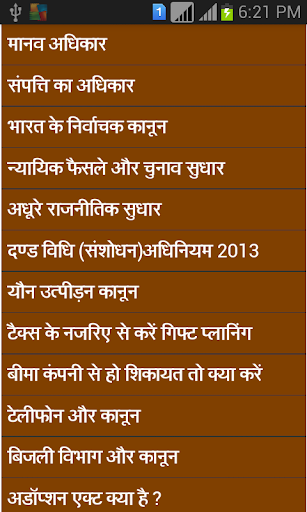 1 6:21 PM
मानव अधिकार
संपत्ति का अधिकार
भारत के निर्वाचक कानून
न्यायिक फैसले और चुनाव सुधार
अधूरे राजनीतिक सुधार
दण्ड विधि (संशोधन)अधिनियम 2013
यौन उत्पीड़न कानून
टैक्स के नजरिए से करें गिफ्ट प्लानिंग
बीमा कंपनी से हो शिकायत तो क्या करें
टेलीफोन और कानून
बिजली विभाग और कानून
अडॉप्शन एक्ट क्या है ?